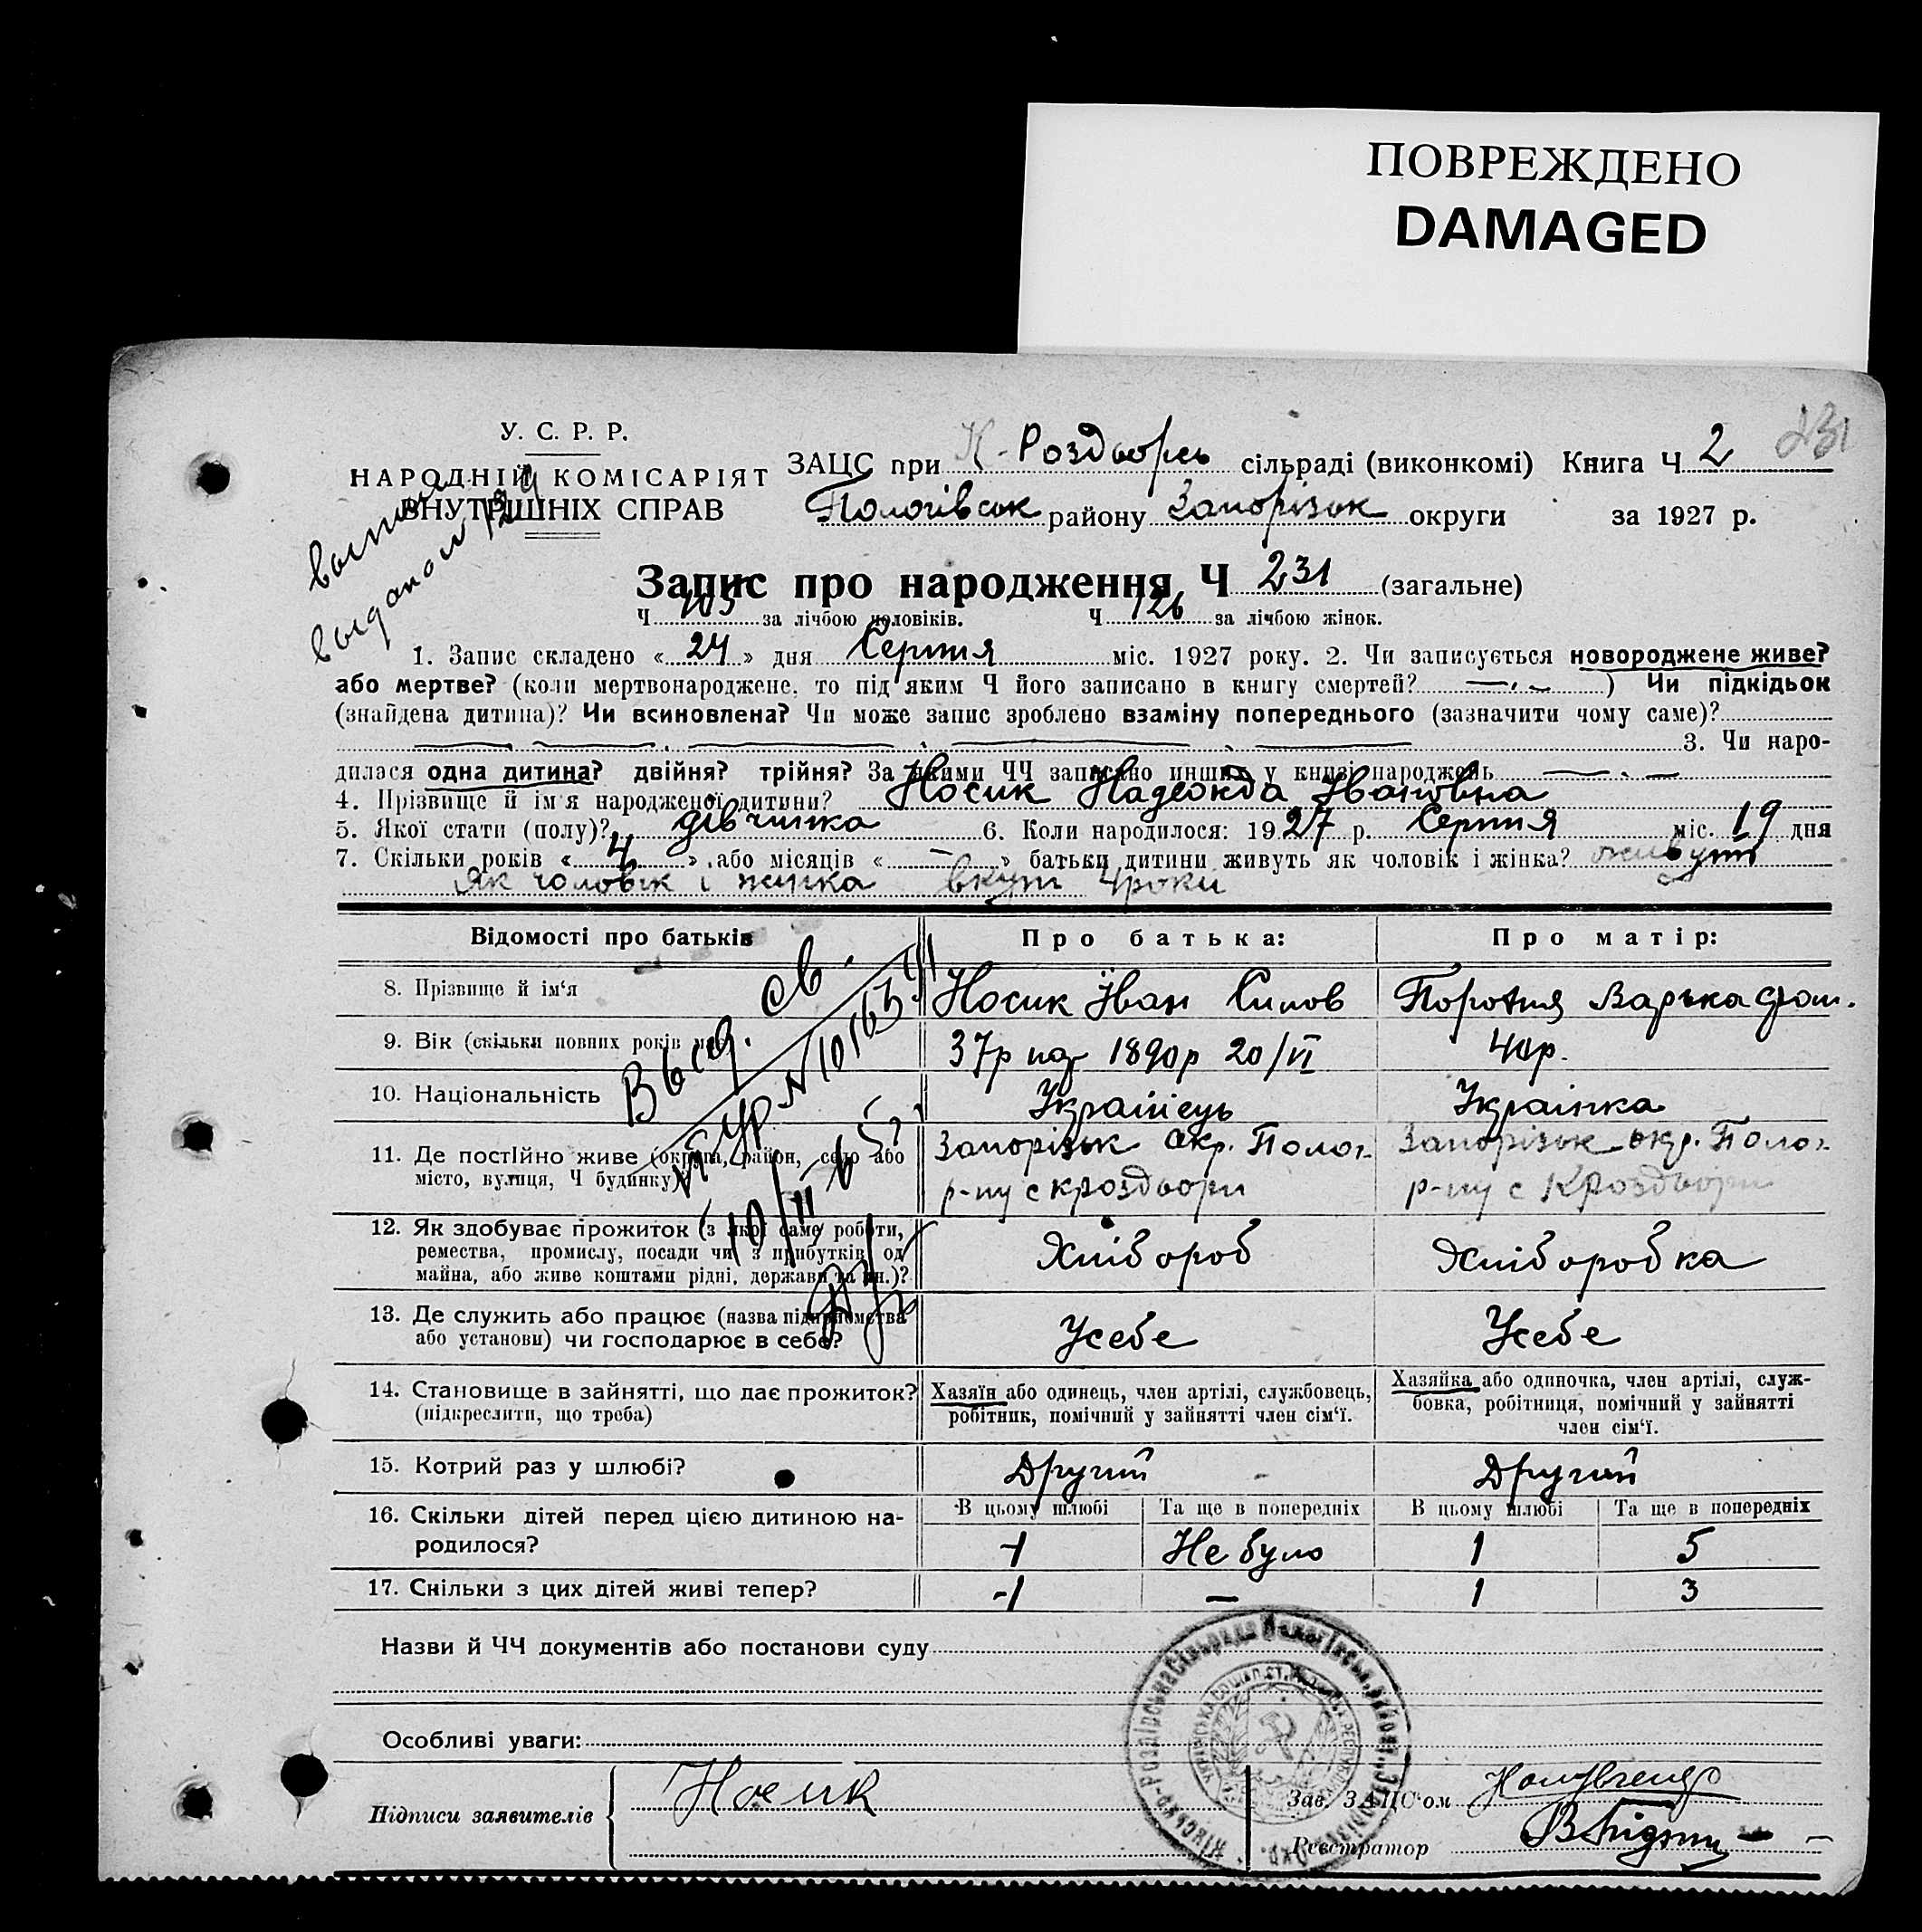 ПОВРЕЖДЕНО
DAMAGED
231
У. С. Р. Р.
НАРОДНІЙ КОМІСАРІЯТ
ВНУТРІШНІХ СПРАВ
ЗАЦС при К-Роздьорсь сільраді (виконкомі) Книга Ч 2
Пологівськ району Запорізьк округи за 1927 р.
Запис про народження Ч 231 (загальне)
Ч 105 за лічбою чоловіків. Ч 126 за лічбою жінок.
1. Запис складено « 24 » дня Серпня міс. 1927 року. 2. Чи записується новороджене живе?
або мертве? (коли мертвонароджене, то під яким Ч його записано в книгу смертей? ) Чи підкідьок
(знайдена дитина)? Чи всиновлена? Чи може запис зроблено взаміну попереднього (зазначити чому саме)?
3. Чи наро-
дилася одна дитина? двійня? трійня? За якими ЧЧ записано инших у книзі народжень
4. Прізвище й ім'я народженої дитини? Носик Надежда Івановна
5. Якої стати (полу)? дівчинка 6. Коли народилося: 1927 р. Серпня міс. 19 дня
7. Скільки років « 4 » або місяців « – » батьки дитини живуть як чоловік і жінка? живуть
Як чоловік і жинка вкупі 4 роки
Відомості про батьків
Про батька:
Про матір:
8. Прізвище й ім'я
Носик Їван
Варька
9. Вік (скільки повних років має)
37р 1890р 20/VI
40р.
10. Національність
Українець
Українка
11. Де постійно живе (округа, район, село або
місто, вулиця, Ч будинку)
Запорізьк окр. Полог.
р-ну с Кроздьори
Запорізьк окр. Полог.
р-ну с Кроздьори
12. Як здобуває прожиток (з якої саме роботи,
ремества, промислу, посади чи з прибутків од
майна, або живе коштами рідні, держави та ин.)?
Хлібороб
Хліборобка
13. Де служить або працює (назва підприємства
або установи) чи господарює в себе?
Усебе
Усебе
14. Становище в зайнятті, що дає прожиток?
(підкреслити, що треба)
Хазяїн або одинець, член артілі, службовець,
робітник, помічний у зайнятті член сім'ї.
Хазяйка або одиночка, член артілі, служ-
бовка, робітниця, помічний у зайнятті
член сім'ї.
15. Котрий раз у шлюбі?
Другий
Другий
16. Скільки дітей перед цією дитиною на-
родилося?
В цьому шлюбі Та ще в попередніх В цьому шлюбі Та ще в попередніх
1 Не було 1 5
17. Скільки з цих дітей живі тепер?
1 – 1 3
Назви й ЧЧ документів або постанови суду
Особливі уваги:
Підписи заявителів
Носик
Зав. ЗАЦС'ом
Реєстратор
Выд. св.